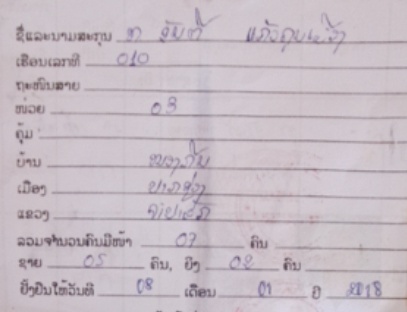 ຊື່ແລະນາມສະກຸນ ທ ຈັນທີ ແກ້ວ
ເຮືອນເລກທີ 010
ຖະໜົນສາຍ
ໜ່ວຍ 03
ຄຸ້ມ
ບ້ານ
ເມືອງ ປາກຊ່ອງ
ແຂວງ ຈຳປາສັກ
ລວມຈຳນວນຄົນມີໜ້າ 07 ຄົນ
ຊາຍ 05 ຄົນ, ຍິງ 02 ຄົນ
ຢັ້ງຢືນໃຫ້ວັນທີ 08 ເດືອນ 01 ປີ 2018